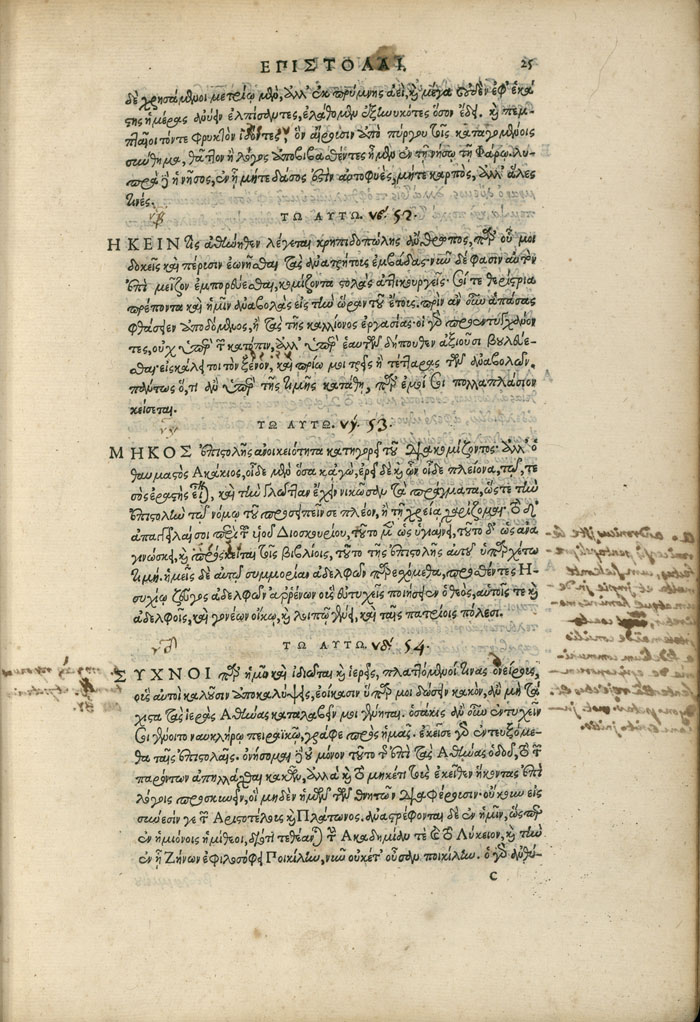 ΕΠΙΣΤΟΛΑΙ. 25
δὲ χρησάμενοι μετρίῳ μὲν, ἀλλ' ἐκ πρύμνης ἀεὶ, καὶ μέγα οὐδὲν ἐφ' ἑκά-
στης ἡμέρας ἀνύειν ἐλπίσαντες, ἐλάθομεν ἐξηνυκότες ὅσον ἔδει. καὶ πεμ-
πταῖοι τόν τε φρυκτὸν ἰδόντες, ὃν αἴρουσιν ἀπὸ πύργου τοῖς καταγομένοις
σύνθημα, θᾶττον ἢ λόγος ἀποβιβασθέντες ἦμεν ἐν τῇ νήσῳ τῇ Φάρῳ. λυ-
πρὰ δὲ ἡ νῆσος, ἐν ᾗ μήτε δάσος ἐστὶν αὐτοφυὲς, μήτε καρπὸς, ἀλλ' ἅλες
τινές.
ΤΩ ΑΥΤΩ. 52.
ΗΚΕΙΝ τὶς ἀθήνηθεν λέγεται κρηπιδοπώλης ἄνθρωπος, παρ' οὗ μοι
δοκεῖς καὶ πέρισιν ἐωνῆσθαι τὰς εὐατρήτοις ἐμβάδας· νῦν δέ φασιν αὐτὸν
ἐπὶ μεῖζον ἐμπορεύεσθαι, κομίζοντα στολὰς ἀττικουργεῖς· σοί τε θερίστρια
πρέποντα καὶ ἡμῖν ἀναβολὰς εἰς τὴν ὥραν τοῦ ἔτους. πρὶν ἂν οὖν ἁπάσας
φθάσῃ ἀποδόμενος, ἢ τὰς τῆς καλλίονος ἐργασίας· οἱ γὰρ προεντυγχάνον-
τες, οὐχ ὑπὲρ τῶν κατόπιν, ἀλλ' ὑπὲρ ἑαυτῶν δήπουθεν ἀξιοῦσι βουλεύε-
σθαι· εἰσκάλει τοι τὸν ξένον, καὶ πρίω μοι τρεῖς ἢ τέτταρας τῶν ἀναβολῶν.
πάντως ὅ, τι ἂν ὑπὲρ τῆς τιμῆς κατάθῃ, παρ' ἐμοί σοι πολλαπλάσιον
κείσεται.
ΤΩ ΑΥΤΩ. νγ. 53.
ΜΗΚΟΣ ἐπιστολῆς ἀνοικειότητα κατηγορεῖ τοῦ διακομίζοντος· ἀλλ' ὁ
θαυμαστὸς Ακάκιος, οἶδε μὲν ὅσα κᾀγὼ, ἐρεῖ δὲ καὶ ὧν οἶδε πλείονα, τῷ, τε
σὸς ἐραστὴς εἶναι, καὶ τὴν γλῶτταν ἔχειν νικῶσαν τὰ πράγματα, ὥστε τὴν
ἐπιστολὴν τῷ νόμῳ τοῦ προσειπεῖν σε πλέον, ἢ τῇ χρείᾳ χαρίζομαι·
τοῦτο μὲν ὡς ὑγιαίνει, τοῦτο δ' ὡς ἀνα-
γινώσκει, καὶ πρόσκειται τοῖς βιβλίοις, τοῦτο τῆς ἐπιστολῆς
τιμή. ἡμεῖς δὲ αὐτῷ συμμορίαν ἀδελφῶν παρεχόμεθα, προσθέντες Η-
συχίῳ ζεῦγος ἀδελφῶν ἀρρένων οὓς εὐτυχεῖς ποιήσειεν ὁ θεὸς, αὐτοῖς τε καὶ
ἀδελφοῖς, καὶ γονέων οἴκῳ, καὶ λοιπῷ γένει, καὶ ταῖς πατρίοις πόλεσι.
ΤΩ ΑΥΤΩ. νδ. 54.
ΣΥΧΝΟΙ παρ' ἡμῖν καὶ ἰδιῶται καὶ ἱερεῖς, πλαττόμενοί τινας ὀνείρους,
οὓς αὐτοὶ καλοῦσιν ἀποκαλύψεις, ἐοίκασιν ὕπαρ μοι δώσειν κακὸν, ἂν μὴ τά-
χιστα τὰς ἱερὰς Αθήνας καταλαβεῖν μοι γένηται. ὁσάκις ἂν οὖν ἐντυχεῖν
σοι γένοιτο ναυκλήρῳ πειραϊκῷ, γράφε πρὸς ἡμᾶς. ἐκεῖσε γὰρ ἐντευξόμε-
θα ταῖς ἐπιστολαῖς. ὀνήσομαι δὲ οὐ μόνον τοῦτο τῆς ἐπὶ τὰς Αθήνας ὁδοῦ, τὸ τῶν
παρόντων ἀπολλάχθαι κακῶν, ἀλλὰ καὶ τὸ μηκέτι τοὺς ἐκεῖθεν ἥκοντας ἐπὶ
λόγοις προσκυνεῖν, οἳ μηδὲν ἡμῶν τῶν θνητῶν διαφέρουσιν· οὔκουν εἰς
σύνεσίν γε τῶν Αριστοτέλοις καὶ Πλάτωνος. ἀναστρέφονται δὲ ἐν ἡμῖν, ὥσπερ
ἐν ἡμιόνοις ἡμίθεοι, διότι τεθέανται τήν Ακαδημίαν τε καὶ τὸ Λύκειον, καὶ τὴν
ἐν ᾗ Ζήνων ἐφιλοσόφει Ποικίλην, νῦν οὐκέτ' οὖσαν ποικίλην. ὁ γὰρ ἀνθύ-
C